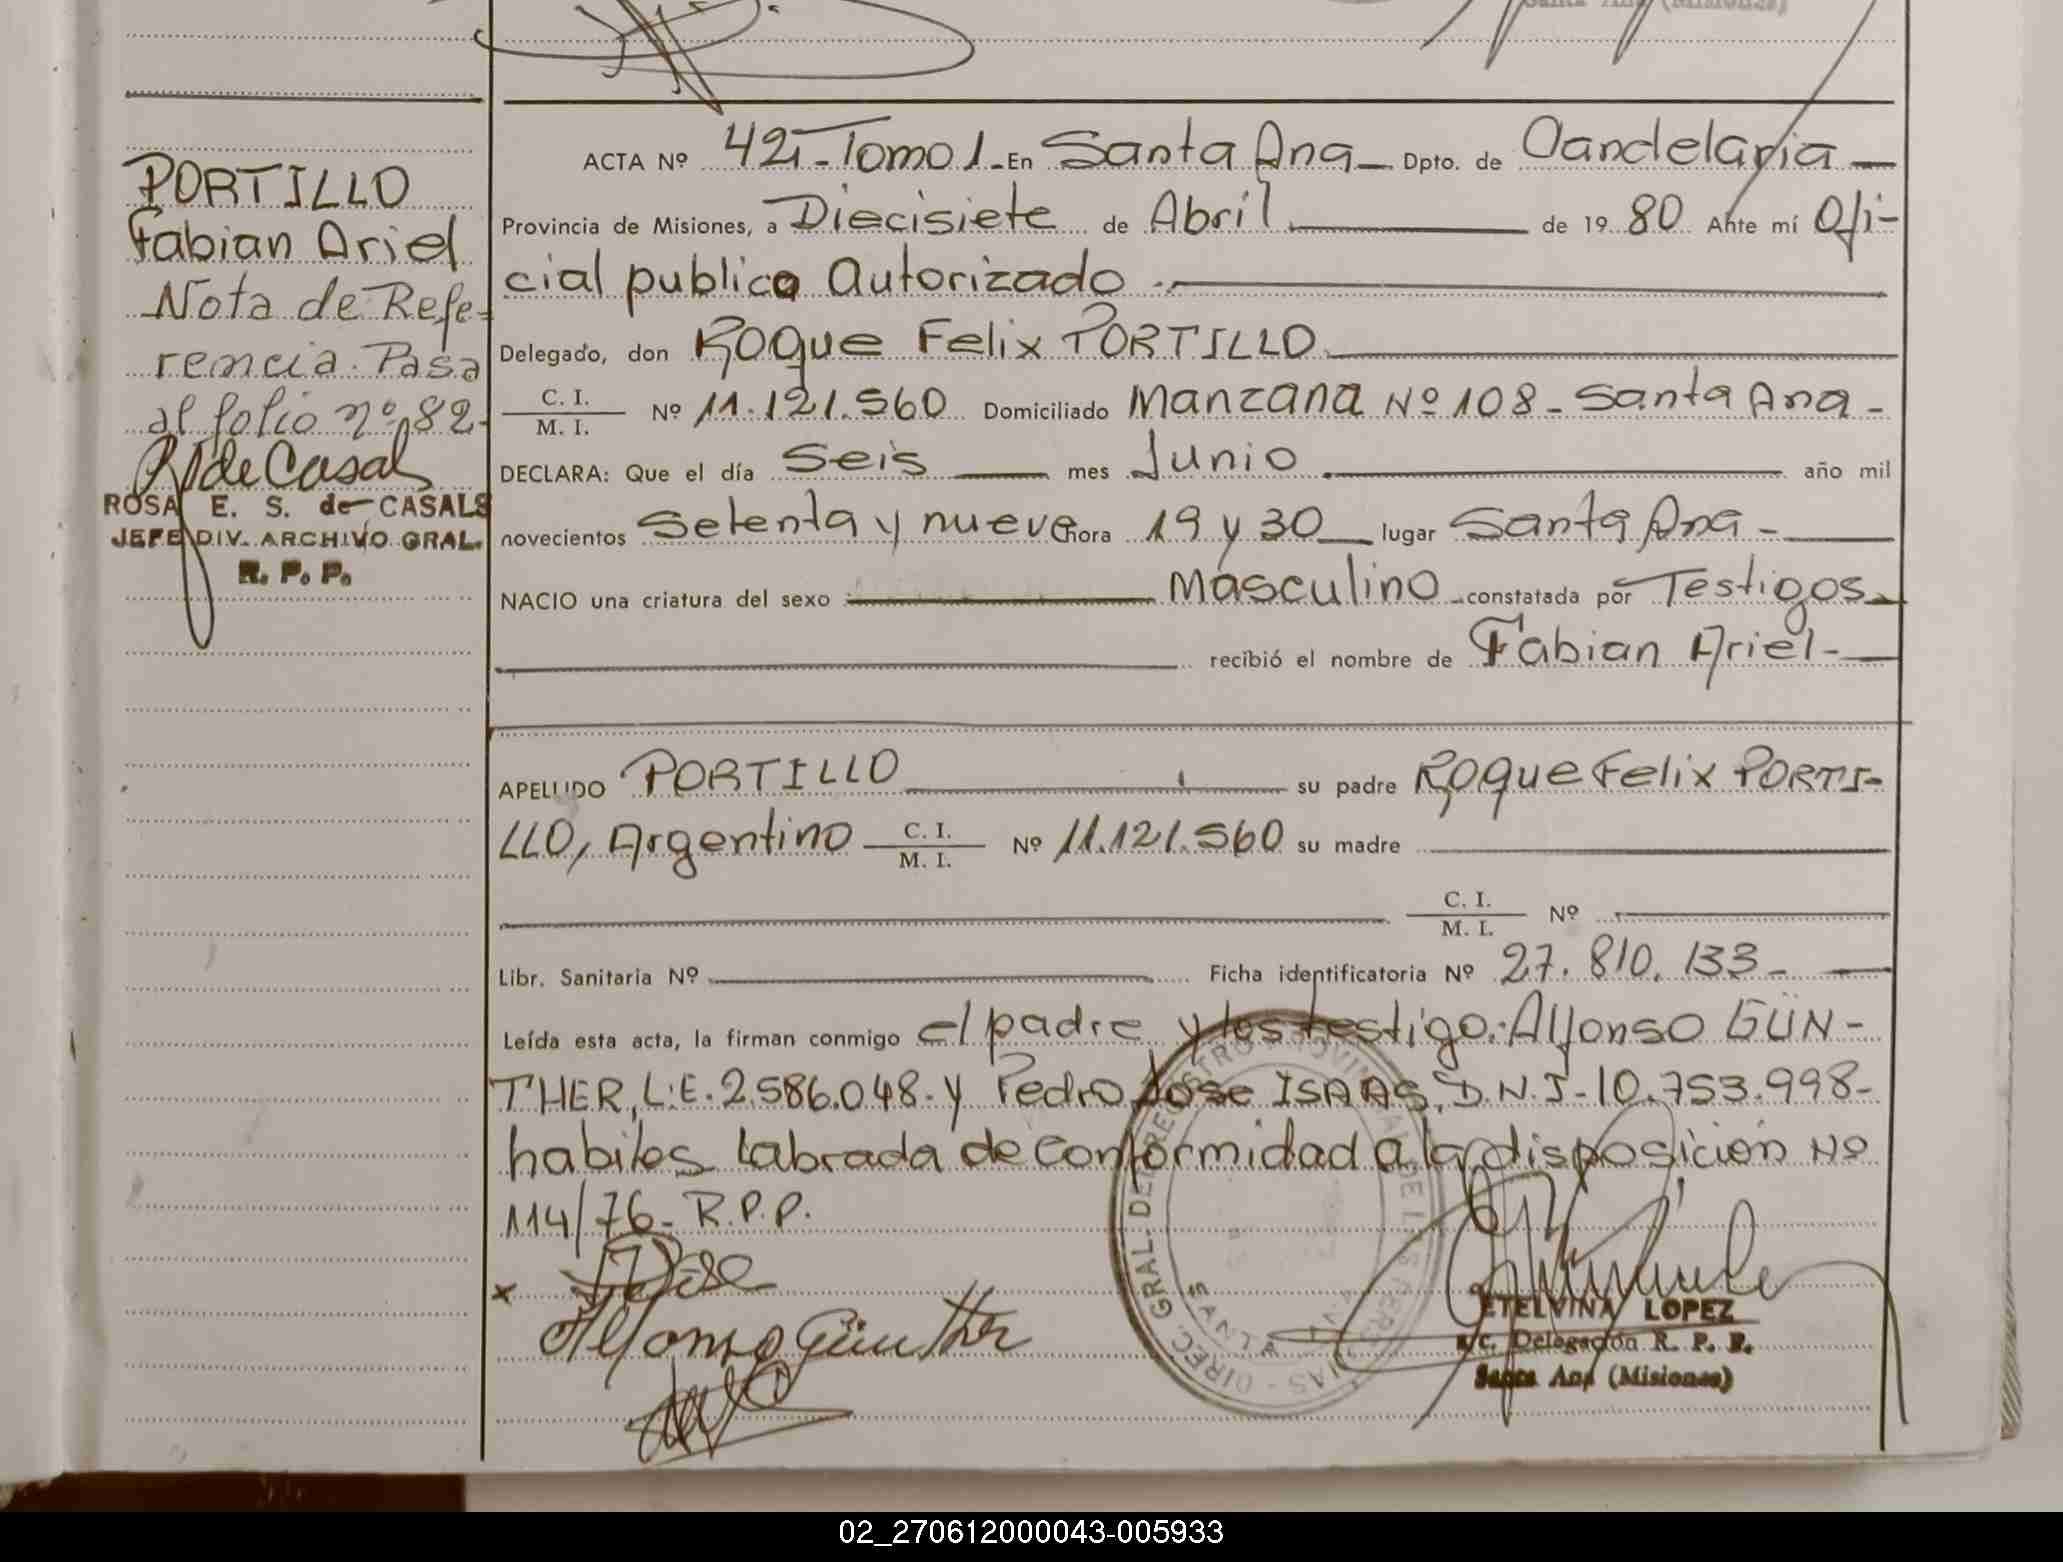 Santa Ana (Misiones)
PORTILLO
Fabian Ariel
Nota de Refe-
rencia. Pasa
al folio nº 82-
R S de Casals
ROSA E. S. de CASALS
JEFE DIV. ARCHIVO GRAL.
R. P. P.
ACTA Nº 42-Tomo 1-En Santa Ana- Dpto. de Candelaria-
Provincia de Misiones, a Diecisiete de Abril de 1980 Ante mí Ofi-
cial publico Autorizado
Delegado, don Roque Felix PORTILLO
C. I.
M. I. Nº 11.121.560 Domiciliado Manzana Nº 108-Santa Ana-
DECLARA: Que el día Seis mes Junio año mil
novecientos Setenta y nueve hora 19 y 30 lugar Santa Ana-
NACIO una criatura del sexo Masculino constatada por Testigos
recibió el nombre de Fabian Ariel-
APELLIDO PORTILLO su padre Roque Felix PORTI-
LLO, Argentino C. I.
M. I. Nº 11.121.560 su madre
C. I.
M. I. Nº
Libr. Sanitaria Nº Ficha identificatoria Nº 27.810.133-
Leída esta acta, la firman conmigo el padre y los testigo: Alfonso GÜN-
THER, L.E. 2.586.048. y Pedro Jose ISAAS, D.N.I-10.753.998-
habiles Labrada de conformidad a la disposicion Nº
114/76- R.P.P.
x
Alfonso Günther
DIREC. GRAL. DEL REGISTRO PROVINCIAL DE LAS PERSONAS
SANTA ANA
ETELVINA LOPEZ
a/c. Delegación R. P. P.
Santa Ana (Misiones)
02_270612000043-005933